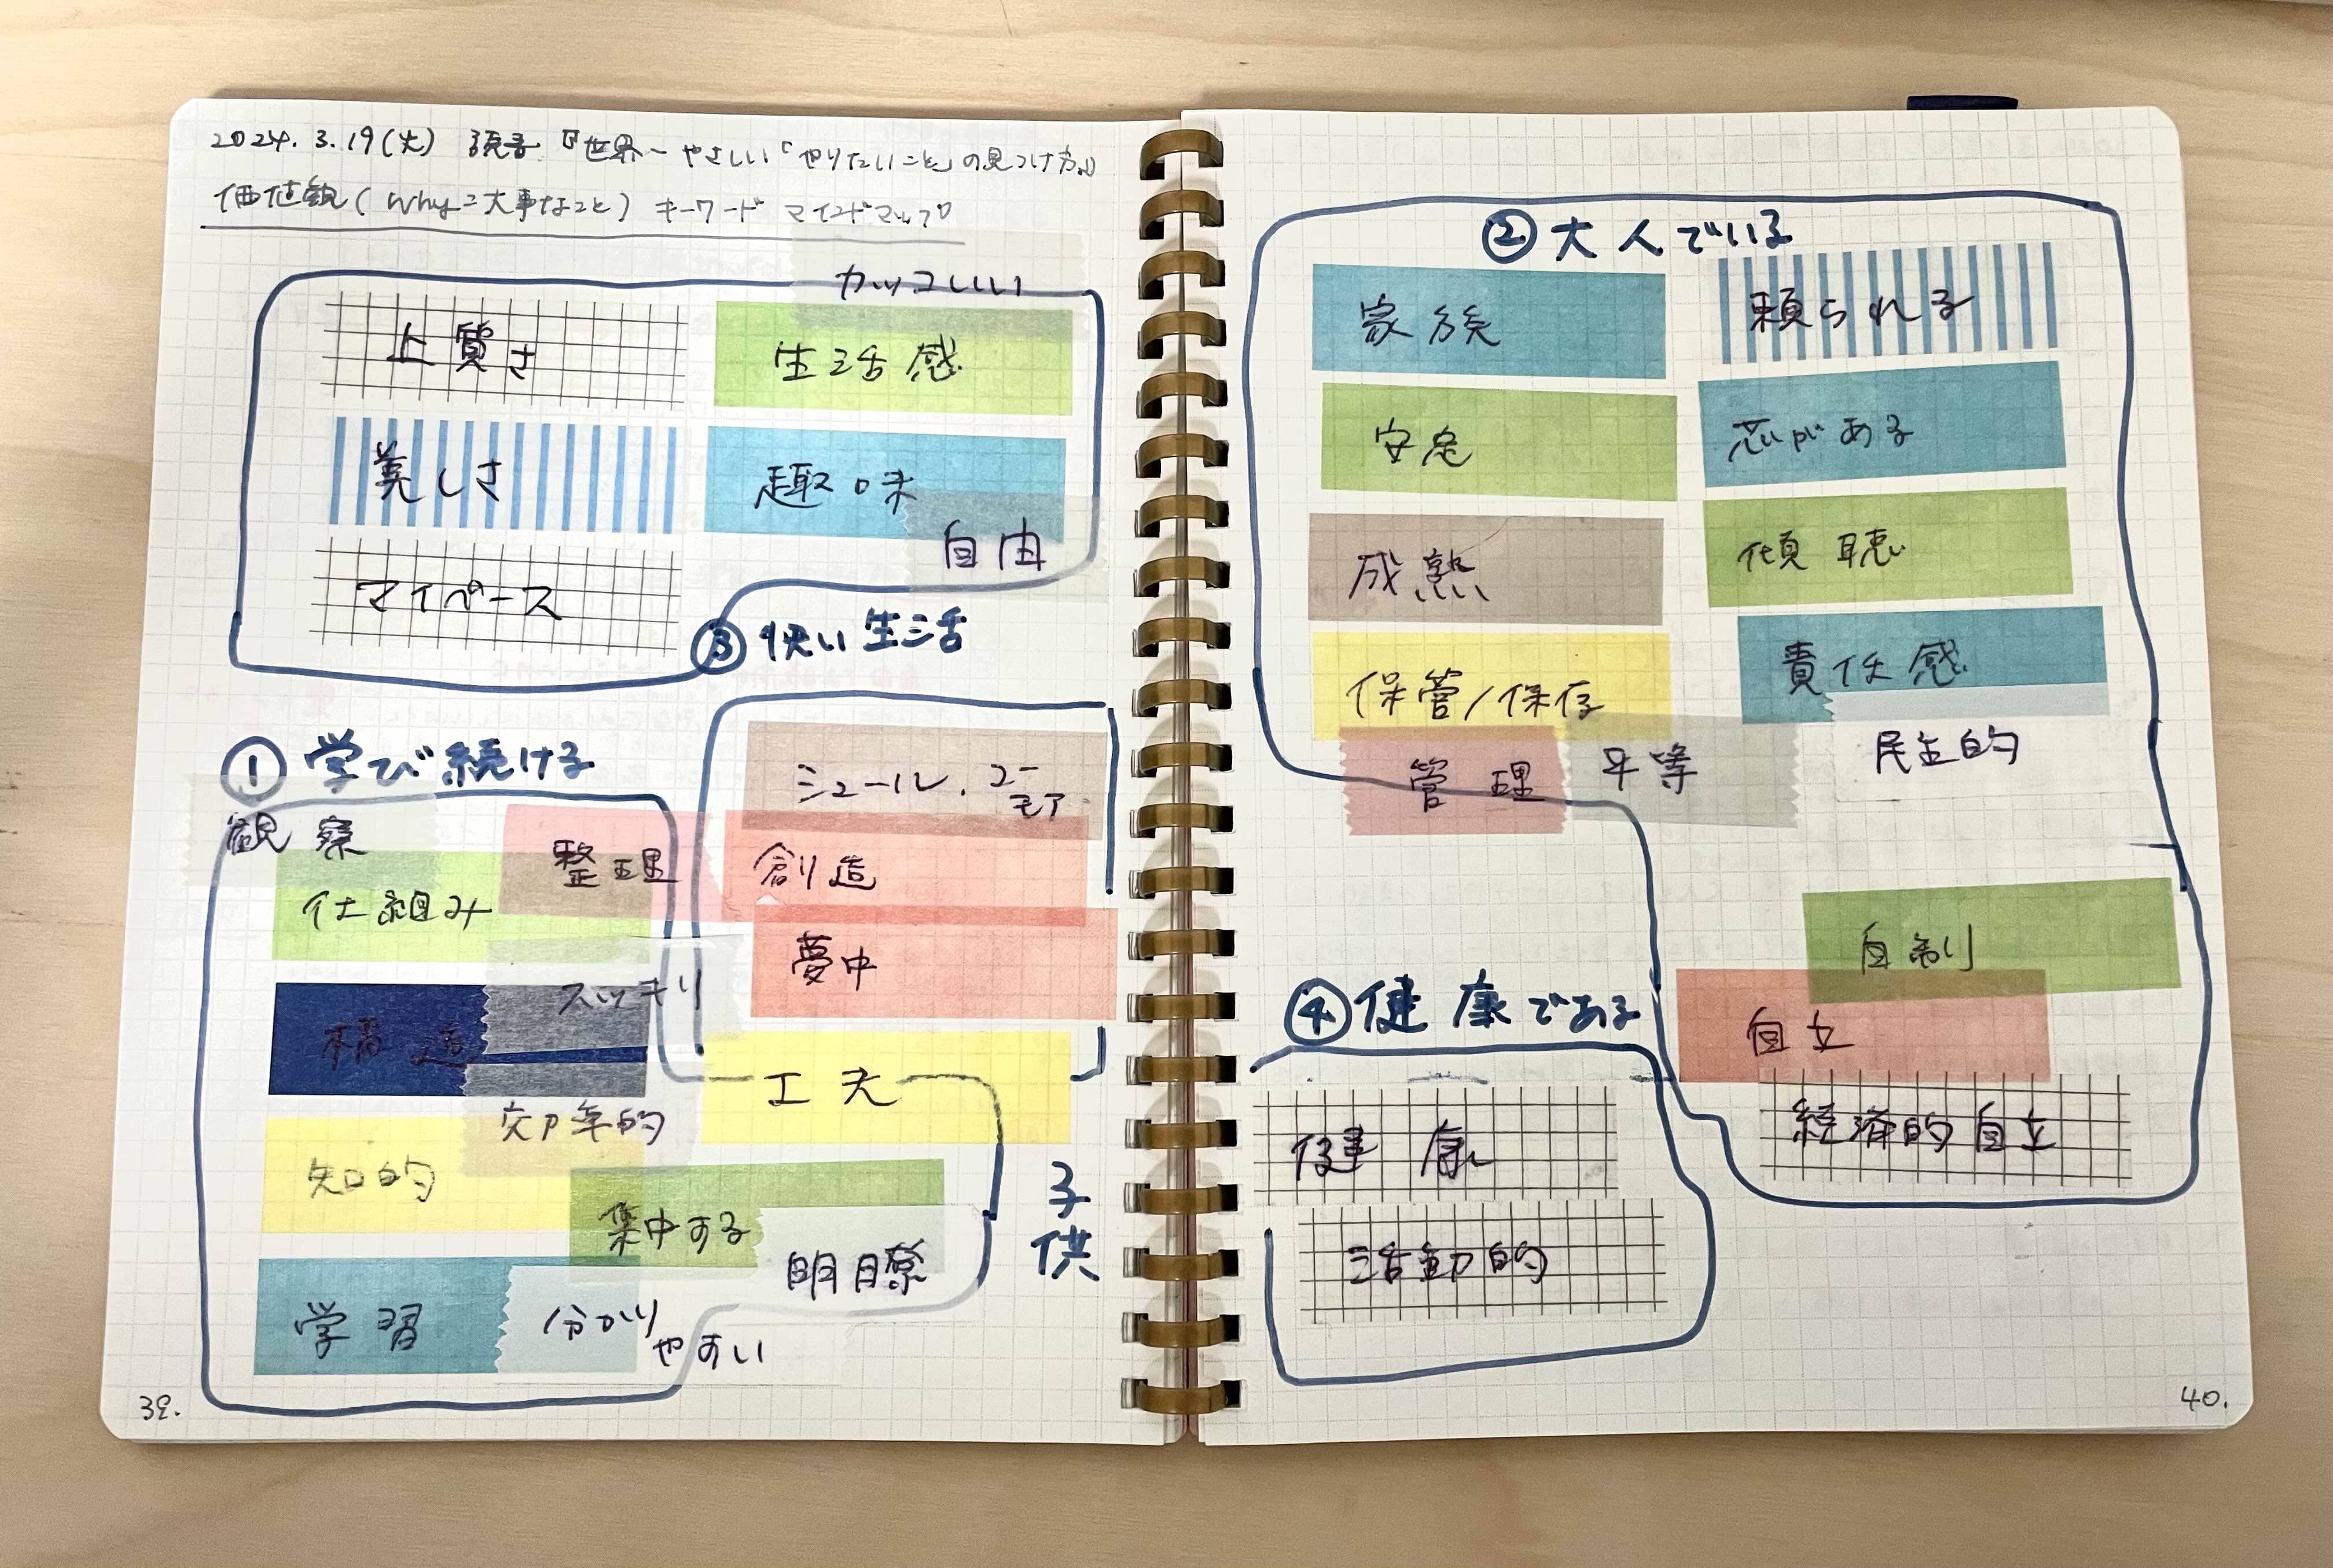 2024.3.19(火) 読書『世界一やさしい「やりたいこと」の見つけ方』
価値観(Why=大事なこと) キーワード マインドマップ
カッコいい
上質さ
生活感
美しさ
趣味
自由
マイペース
③快い生活
①学び続ける
観察
整理
仕組み
スッキリ
構造
効率的
知的
集中する
明瞭
学習
分かり
やすい
シュール、ユー
モア
創造
夢中
工夫
子供
39.
②大人でいる
家族
頼られる
安定
芯がある
成熟
傾聴
保管/保存
責任感
管理
平等
民主的
自制
自立
経済的自立
④健康である
健康
活動的
40.